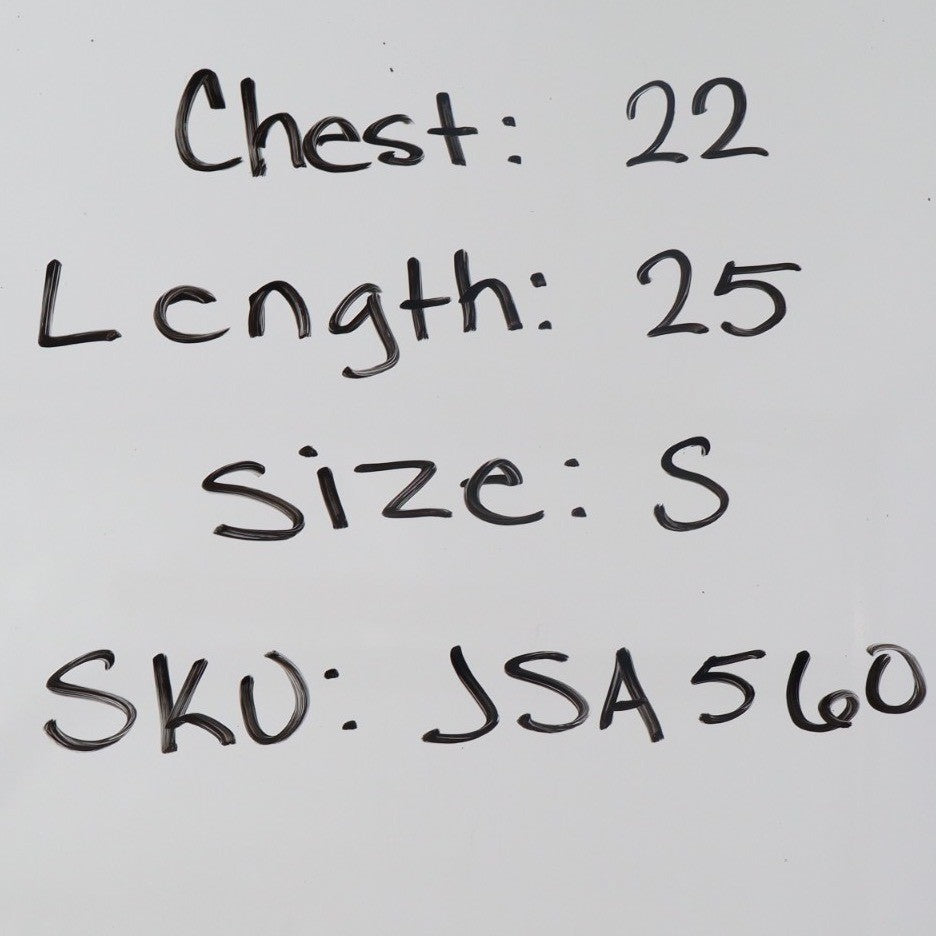 Chest: 22
Length: 25
Size: S
SKU: JSA560